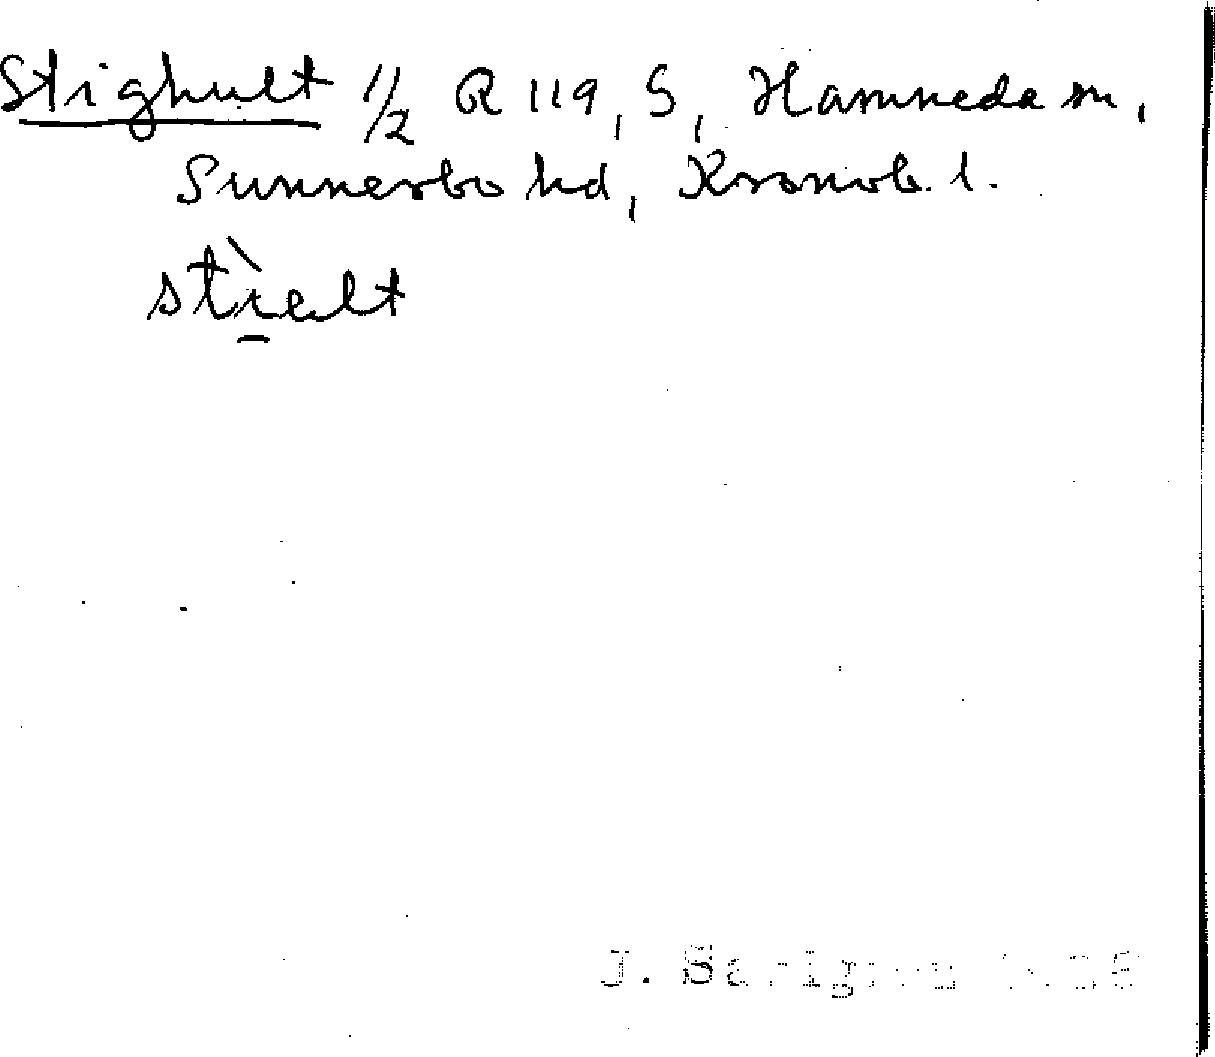 Stighult 1/2 R 119, S, Hamneda sn,
Sunnerbo hd, Kronob. l.
stìelt
J.